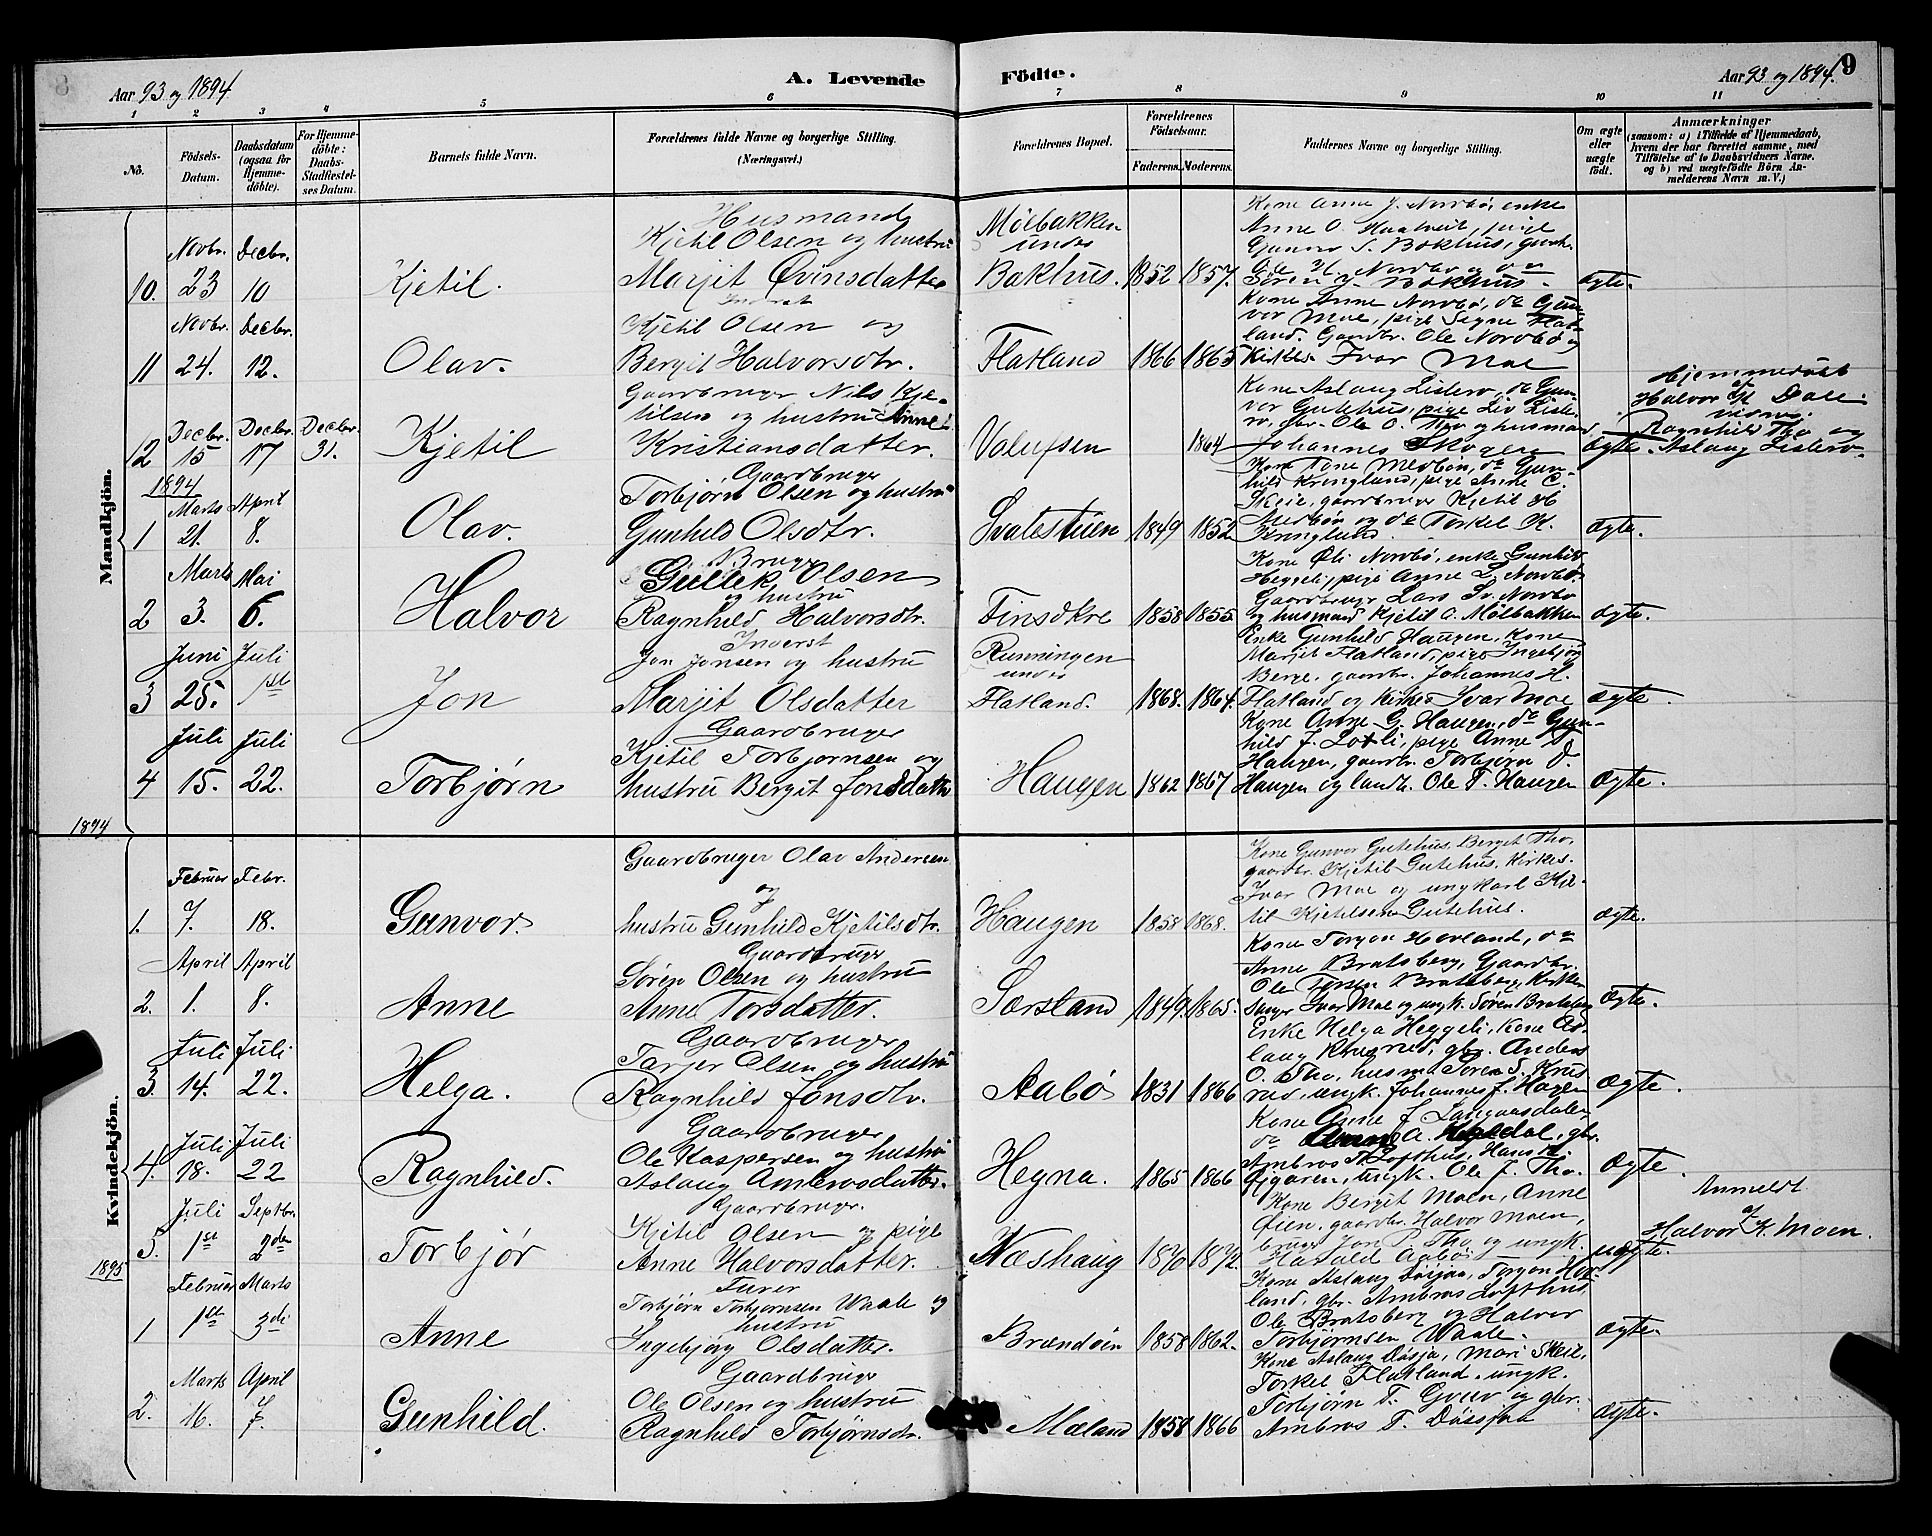 8
Aar 93 og 1894
A. Levende
Födte.
Aar 93 og 1894.
9
1 2 3 4 5 6 7 8 9 10 11
No.
Födsels-
Datum.
Daabsdatum
(ogsaa for
Hjemme-
döbte).
For Hjemme-
döbte:
Daabs-
Stadfæstel-
ses Datum.
Barnets fulde Navn.
Forældrenes fulde Navne og borgerlige Stilling.
(Næringsvei.)
Forældrenes Bopæl.
Forældrenes
Födselsaar.
Faderens. Moderens.
Faddernes Navne og borgerlige Stilling.
Om ægte
eller
uægte
födt.
Anmærkninger
(saasom: a) i Tilfælde af Hjemmedaab,
hvem der har forrettet samme, med
Tilföielse af to Daabsvidners Navne.
og b) ved uægtefödte Börn An-
melderens Navn m. V.)
Mandkjön.
Novbr. Decbr.
10. 23 10
Kjetil.
Husmand
Kjetil Olsen og hustru
Marjit Øvinsdatter
Mølbakken
under
Bakhus. 1852 1857.
Kone Anne J. Norbø, enke
Anne O. pige
Gunvor S. Bakhus,
Ole H. Norbø og do
Søren J. Bakhus.
ægte.
Novbr. Decbr.
11 24. 12.
Olav.
Inderst
Kjetil Olsen og
Bergit Halvorsdtr.
Flatland 1866 1865
Kone Anne Norbø, do Gun-
vor Moe, pige Signe Flat-
land. Gaardbr. Ole Norbø og
Kirkes. Ivar Moe
Decbr. Decbr. Decbr.
12 15 17 31.
Kjetil
Gaardbruger Nils Kje-
tilsen og hustru Anne
Kristiansdatter.
1864
Kone Aslaug Listero, do Gun-
vor Gutehus, pige Liv Liste-
ro, gbr. Ole O. Tho og husmand
Johannes Skogen
ægte.
Hjemmedøbt
af
Halvor Dale.
vidner:
Ragnhild Tho og
Aslaug Listero.
1894
Marts April
1 21. 8.
Olav.
Gaardbruger
Torbjørn Olsen og hustru
Gunhild Olsdtr.
Svalestuen 1849 1852
Kone Tone Medbøn, do Gun-
hild Kringlund, pige Anne C.
Skeie, gaardbruger Kjetil H
Medbøn og do Torkel K.
Kringlund.
ægte.
Marts Mai
2 3. 6.
Halvor
Bruger
Gullek Olsen
og hustru
Ragnhild Halvorsdtr.
Finsdkre 1858 1855
Kone Øli Norbø, enke Gunhild
Heggeli, pige Anne L. Norbø
Gaardbruger Lars Sv. Norbø
og husmand Kjetil O. Mølbakken
ægte.
Juni Juli
3 25. 1ste
Jon
Inderst
Jon Jonsen og hustru
Marjit Olsdatter
Runningen
under
Flatland. 1868. 1864.
Enke Gunhild Haugen, Kone
Marjit Flatland, pige Ingebjør
Berge, gaardbr. Johannes H.
Flatland og Kirkes Ivar Moe
ægte.
Juli Juli
4 15. 22.
Torbjørn
Gaardbruger
Kjetil Torbjørnsen og
hustru Bergit Jonsdatter
Haugen 1862 1867
Kone Anne G. Haugen, do Gun-
hild J. Lotli, pige Anne D.
Haugen, gaardbr. Torbjørn D.
Haugen og landh. Ole T. Haugen
ægte.
1894
Kvindekjön.
Februar Febr.
1. 7. 18.
Gunvor.
Gaardbruger Olav Andersen
og
hustru Gunhild Kjetilsdtr.
Haugen 1858 1868.
Kone Gunvor Gutehus. Berget Tho,
gaardbr. Kjetil Gutehus. Kirkes.
Ivar Moe og ungkarl Kje-
til Kjetilsen Gutehus.
ægte.
April April
2. 1. 8.
Anne
Gaardbruger
Søren Olsen og hustru
Anne Torsdatter.
Sørstland 1849 1865.
Kone Torgon Hovland, do
Anne Bratsberg, Gaardbr.
Ole Torsen Bratsberg, Kirke
sanger Ivar Moe og ungk. Søren Bratsberg
ægte.
Juli Juli
3. 14. 22.
Helga.
Gaardbruger
Tarjer Olsen og hustru
Ragnhild Jonsdtr.
Aabø 1831 1866
Enke Helga Heggeli, Kone As-
laug Krusrud, gbr. Anders
O. Tho, husm. Søren S. Krus
rud, ungk. Johannes J. Hagen
ægte.
Juli Juli
4. 18. 22
Ragnhild.
Gaardbruger
Ole Kaspersen og hustru
Aslaug Ambrosdatter.
Hegna. 1865 1866
Kone Anne J. Langaasdalen
do A. gbr.
Ambros A. Lofthus, Hans H.
ungk. Ole J. Tho.
ægte.
Juli Septbr.
5. 1ste 2den
Torbjør
Gaardbruger.
Kjetil Olsen og pige
Anne Halvorsdatter.
Næshaug 1870 1872.
Kone Bergit Moen, Anne
Øien, gaardbr. Halvor Moen,
bruger Jon P. Tho og ungk.
Harald Aabø
uægte.
Anmeldt
af
Halvor K. Moen.
1895
Februar Marts
1 1ste 3die
Anne
Furer
Torbjørn Torbjørnsen Waale og
hustru
Ingebjørg Olsdatter.
Brændøen 1858 1862.
Kone Aslaug Døsjaa, Torgon Hov-
land, gbr. Ambros Lofthus
Ole Bratsberg og Halvor
Torbjørnsen Waale.
ægte.
Marts April
2. 16. 7.
Gunhild.
Gaardbruger
Ole Olsen og hustru
Ragnhild Torbjørnsdtr.
Mæland 1858 1866
Kone Aslaug Døsja, Mari Skeie,
Torkel Flatland, ungk.
Torbjørn T. og gbr.
Ambros T. Døssjaa
ægte.